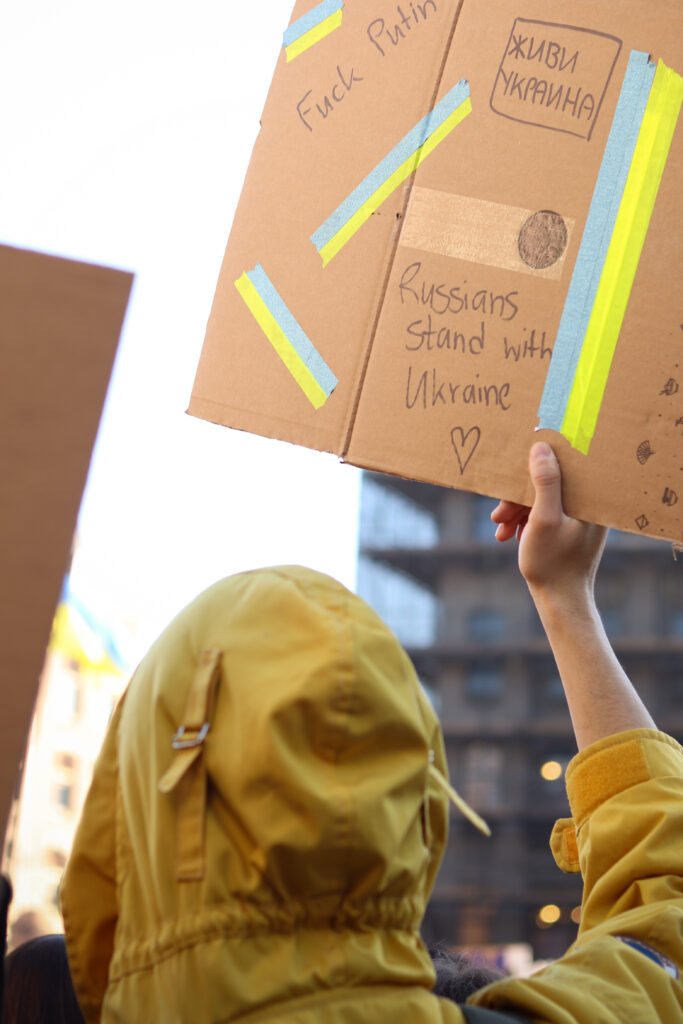 Fuck Putin
ЖИВИ
УКРАИНА
Russians
Stand with
Ukraine